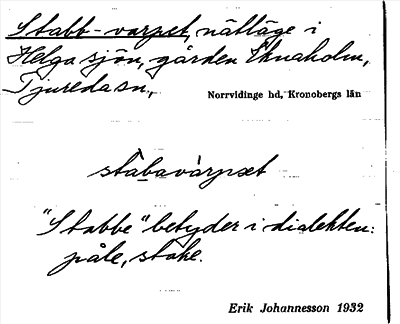 Stabb-varpet, nätläge i
Helgasjön, gården Eknaholm,
Tjureda sn,
Norrvidinge hd, Kronobergs län
stábavàrpət
"Stabbe" betyder i dialekten:
påle, stake.
Erik Johannesson 1932